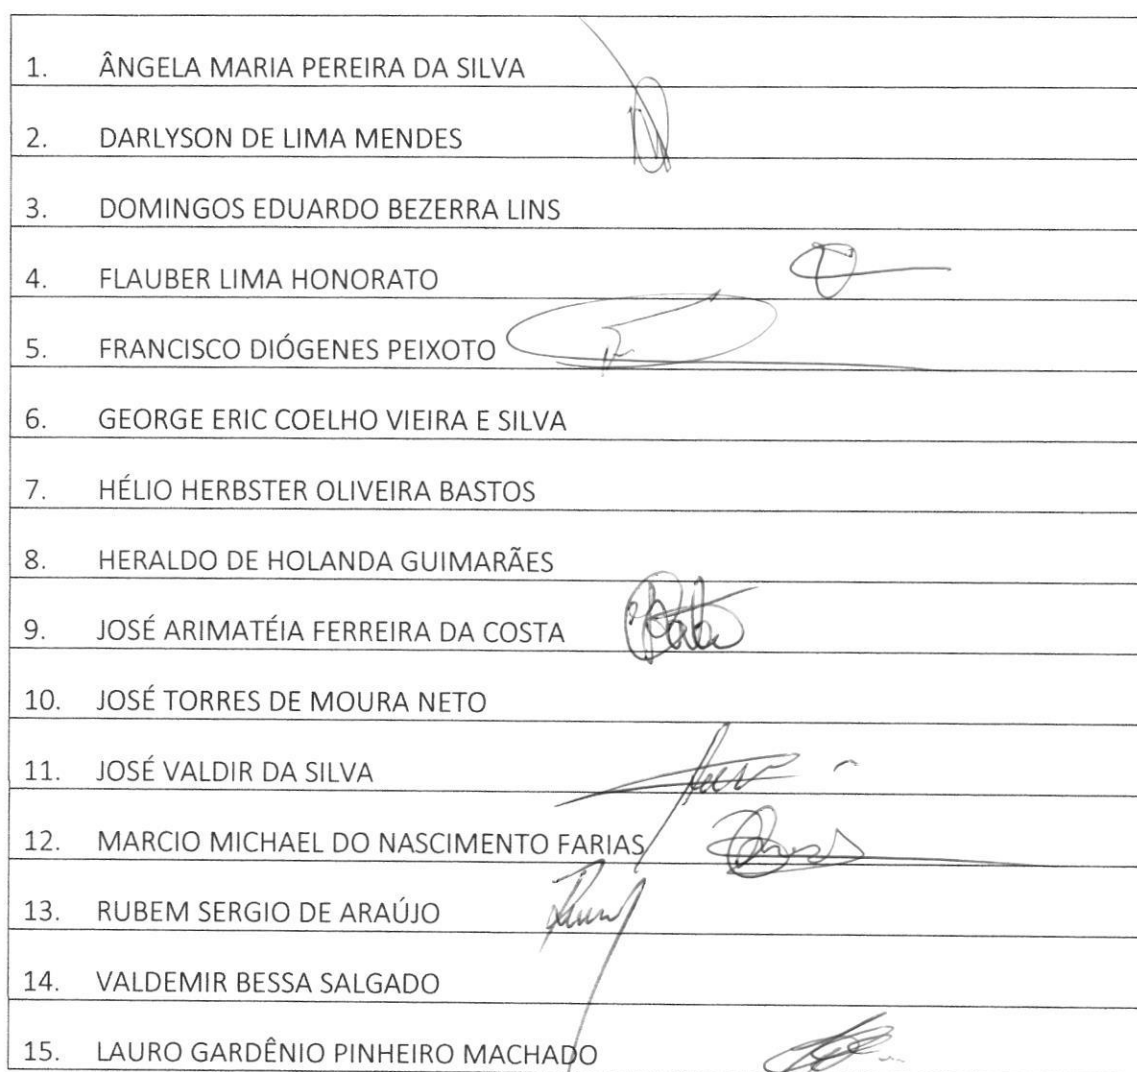 1. ÂNGELA MARIA PEREIRA DA SILVA
2. DARLYSON DE LIMA MENDES
3. DOMINGOS EDUARDO BEZERRA LINS
4. FLAUBER LIMA HONORATO
5. FRANCISCO DIÓGENES PEIXOTO
6. GEORGE ERIC COELHO VIEIRA E SILVA
7. HÉLIO HERBSTER OLIVEIRA BASTOS
8. HERALDO DE HOLANDA GUIMARÃES
9. JOSÉ ARIMATÉIA FERREIRA DA COSTA
10. JOSÉ TORRES DE MOURA NETO
11. JOSÉ VALDIR DA SILVA
12. MARCIO MICHAEL DO NASCIMENTO FARIAS
13. RUBEM SERGIO DE ARAÚJO
14. VALDEMIR BESSA SALGADO
15. LAURO GARDÊNIO PINHEIRO MACHADO